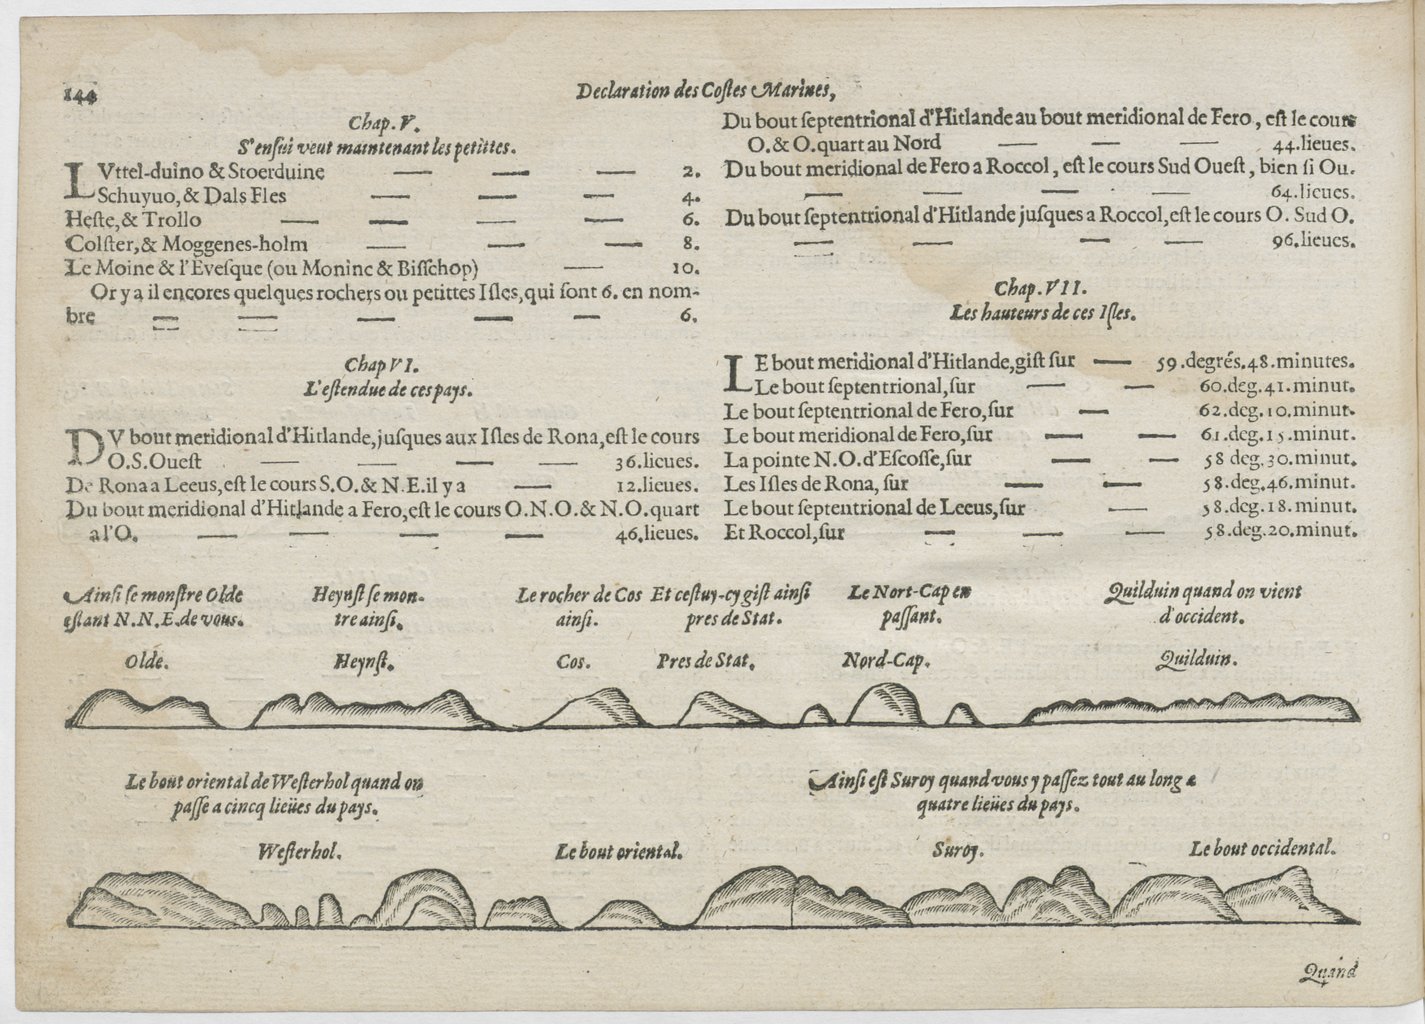 144
Declaration des Costes Marines,
Chap. V.
S'ensuit veut maintenant les petittes.
LVttel-duino & Stoerduine — — — 2.
Schuyuo, & Dals Fles — — — 4.
Heste, & Trollo — — — — 6.
Colster, & Moggenes-holm — — — 8.
Le Moine & l'Evesque (ou Moninc & Bisschop) — 10.
Or y a il encores quelques rochers ou petittes Isles, qui sont 6. en nom-
bre — — — — — 6.
Chap VI.
L'estendue de ces pays.
DV bout meridional d'Hitlande, jusques aux Isles de Rona, est le cours
O.S.Ouest — — — — 36.lieues.
De Rona a Leeus, est le cours S.O. & N.E. il y a — 12.lieues.
Du bout meridional d'Hitlande a Fero, est le cours O.N.O. & N.O. quart
a l'O. — — — — 46.lieues.
Du bout septentrional d'Hitlande au bout meridional de Fero, est le cours
O. & O. quart au Nord — — — 44.lieues.
Du bout meridional de Fero a Roccol, est le cours Sud Ouest, bien si Ou.
— — — — 64.lieues.
Du bout septentrional d'Hitlande jusques a Roccol, est le cours O. Sud O.
— — — — 96.lieues.
Chap. VII.
Les hauteurs de ces Isles.
LE bout meridional d'Hitlande, gist sur — 59.degrés.48.minutes.
Le bout septentrional, sur — — 60.deg.41.minut.
Le bout septentrional de Fero, sur — 62.deg.10.minut.
Le bout meridional de Fero, sur — — 61.deg.15.minut.
La pointe N.O. d'Escosse, sur — — 58 deg.30.minut.
Les Isles de Rona, sur — — 58.deg.46.minut.
Le bout septentrional de Leeus, sur — 58.deg.18.minut.
Et Roccol, sur — — — 58.deg.20.minut.
Ainsi se monstre Olde
estant N.N.E. de vous.
Heynst se mon-
tre ainsi.
Le rocher de Cos
ainsi.
Et cestuy-cy gist ainsi
pres de Stat.
Le Nort-Cap en
passant.
Quilduin quand on vient
d'occident.
Olde.
Heynst.
Cos.
Pres de Stat.
Nord-Cap.
Quilduin.
Le bout oriental de Westerhol quand on
passe a cincq lieües du pays.
Ainsi est Suroy quand vous y passez tout au long a
quatre lieües du pays.
Westerhol.
Le bout oriental.
Suroy.
Le bout occidental.
Quand